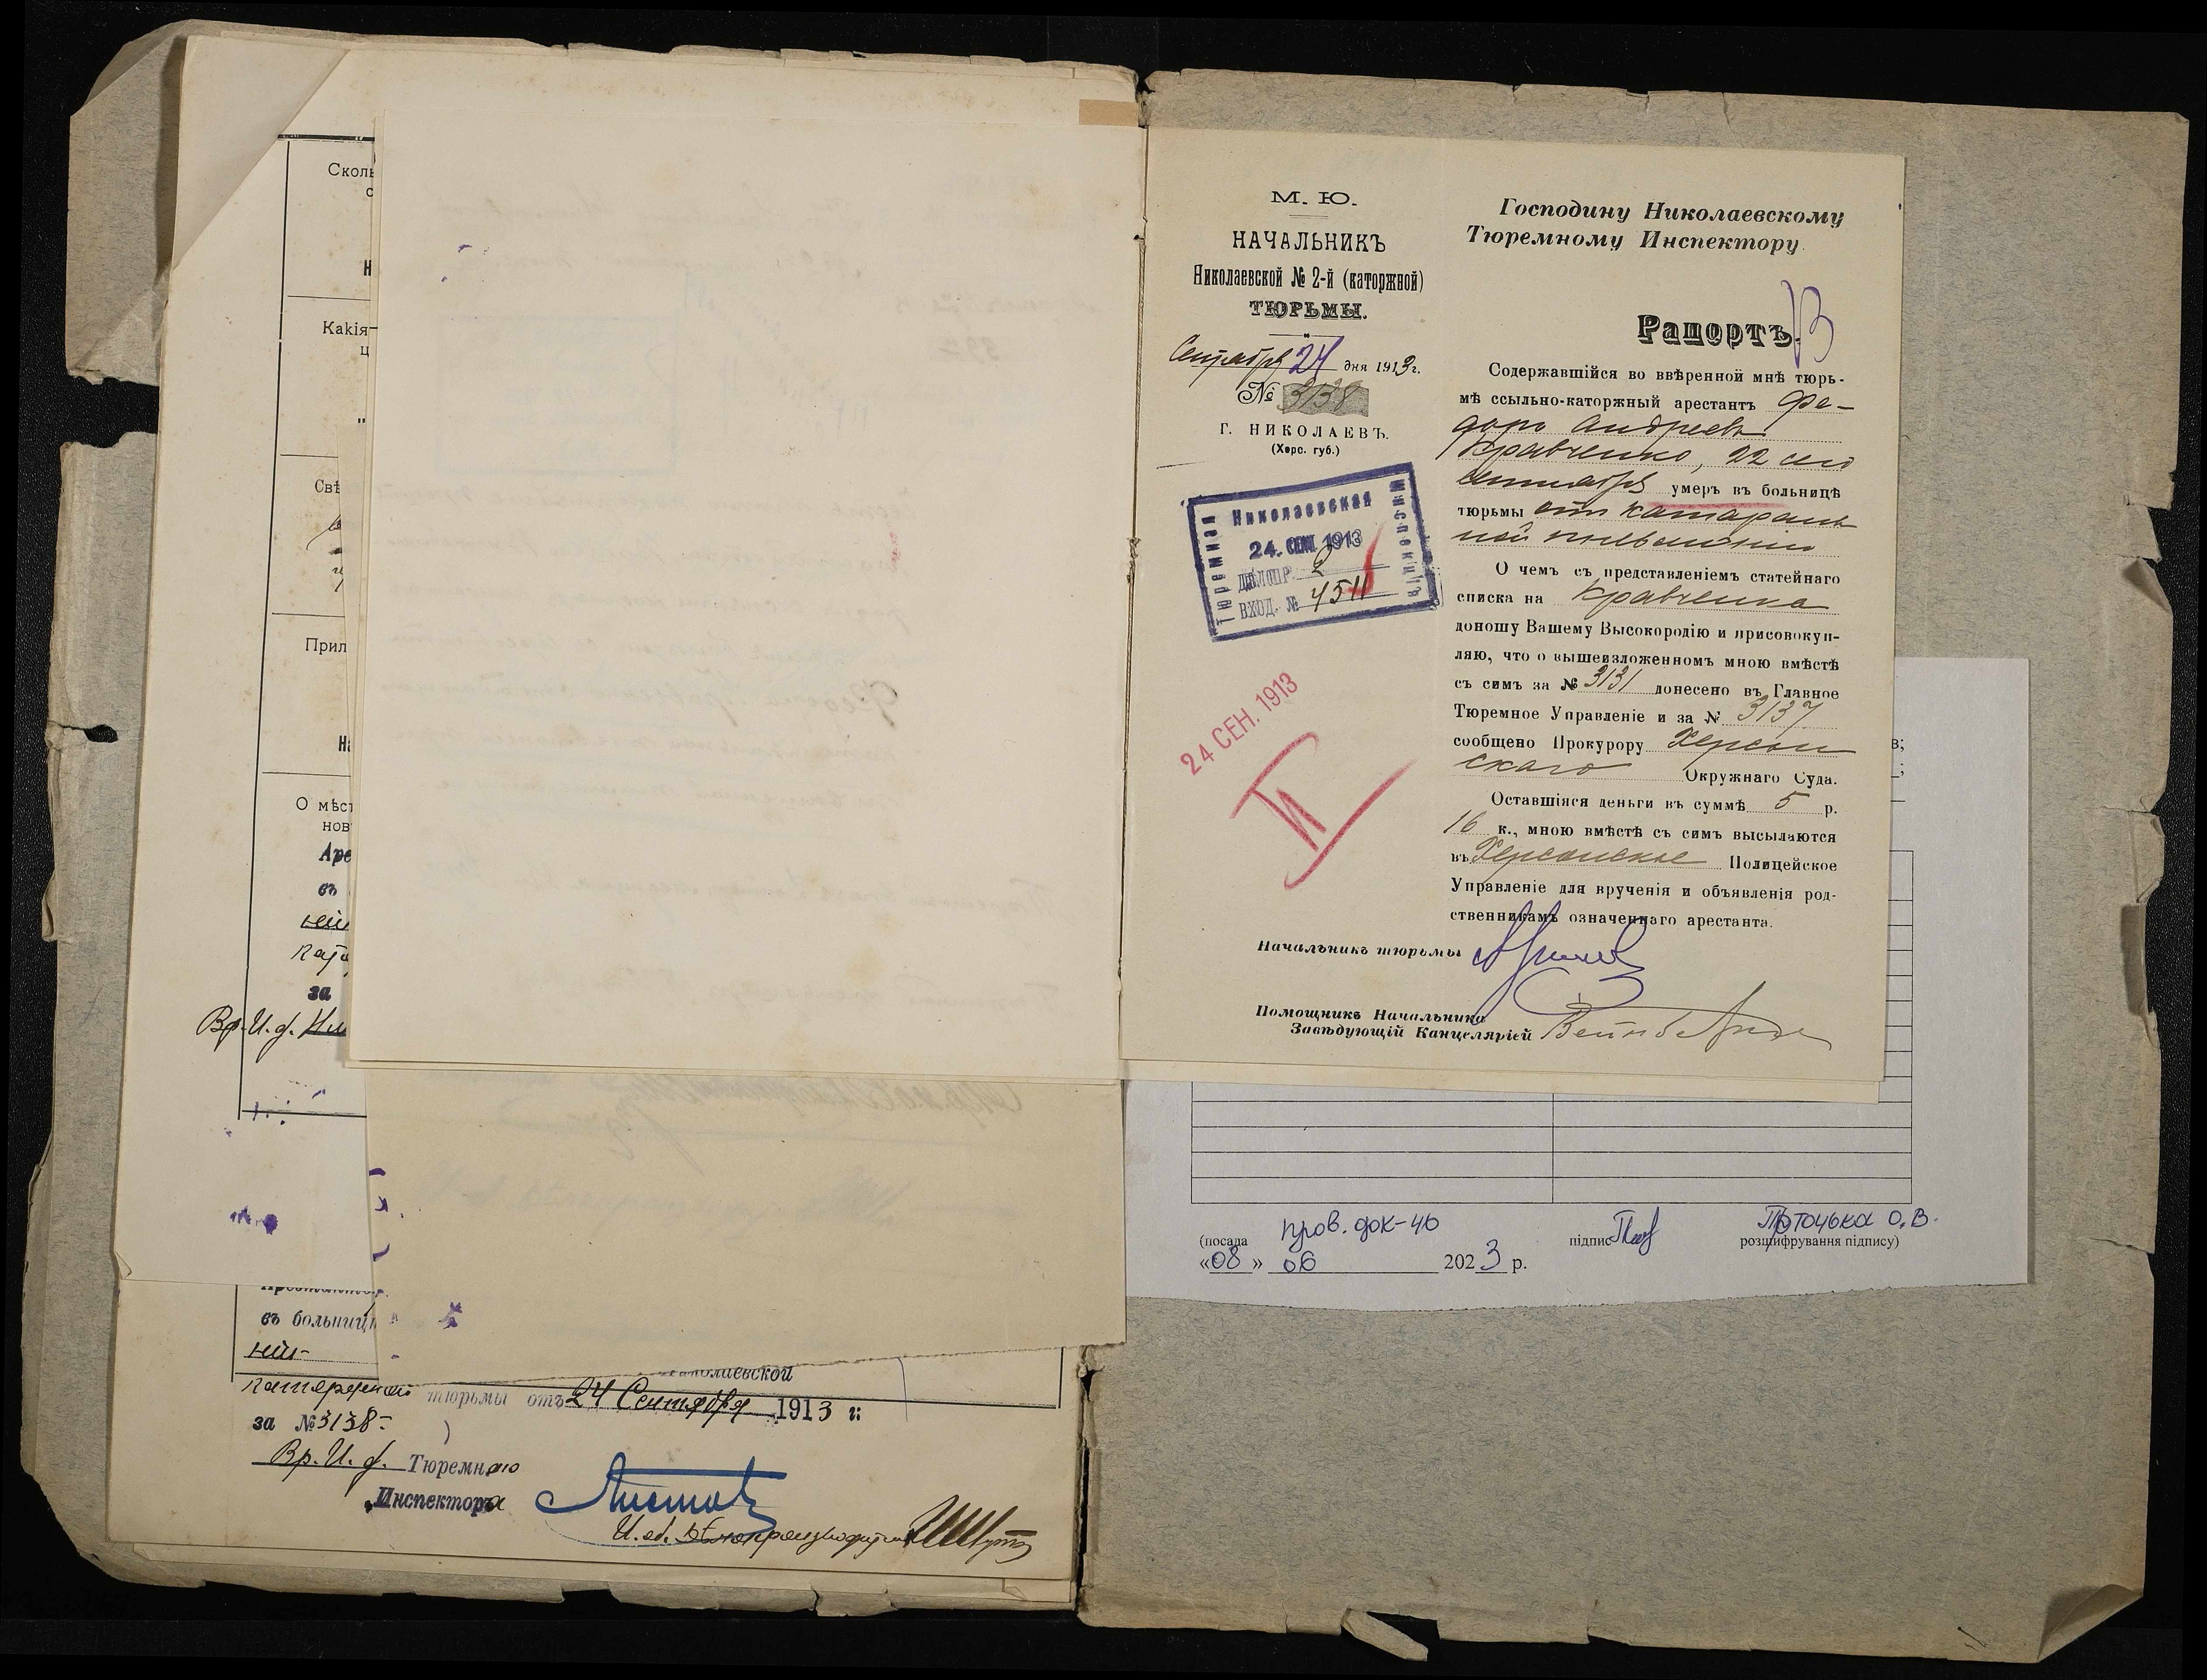 Сколь
с
Н
Какія
ц
"
Свѣ
Прил
На
О мѣст
нов
Аре
въ
ній
като
за
Вр. И. д.
въ больниц
ній-
Николаевской
каторжной тюрьмы отъ 24 Сентября 1913 г:
за № 3138-
Вр. И. д. Тюремнаго
Инспектора
И. об. Дѣлопроизводителя
М. Ю.
НАЧАЛЬНИКЪ
Николаевской № 2-й (каторжной)
ТЮРЬМЫ.
Сентября 24 дня 1913 г.
№ 3138
Г. НИКОЛАЕВЪ.
(Херс. губ.)
Николаевская
Тюремная
Инспекція
24. СЕН. 1913
ДѢЛОПР. 2
ВХОД. № 4511
24 СЕН. 1913
Господину Николаевскому
Тюремному Инспектору.
Рапортъ.
Содержавшійся во ввѣренной мнѣ тюрь-
мѣ ссыльно-каторжный арестантъ Фе-
доръ Андреевъ
Кравченко, 22 сего
Сентября умеръ въ больницѣ
тюрьмы отъ катараль
ной пневмоніи
О чемъ съ представленіемъ статейнаго
списка на Кравченка
доношу Вашему Высокородію и присовокуп-
ляю, что о вышеизложенномъ мною вмѣстѣ
съ симъ за № 3131 донесено въ Главное
Тюремное Управленіе и за № 3137
сообщено Прокурору Херсон
скаго Окружнаго Суда.
Оставшіяся деньги въ суммѣ 5 р.
16 к., мною вмѣстѣ съ симъ высылаются
въ Херсонское Полицейское
Управленіе для врученія и объявленія род-
ственникамъ означеннаго арестанта.
Начальникъ тюрьмы
Помощникъ Начальника
Завѣдующій Канцеляріей
в;
;
пров. док-тв
(посада
підпис
Проточька О.В.
розшифрування підпису)
«08» 06 2023 р.